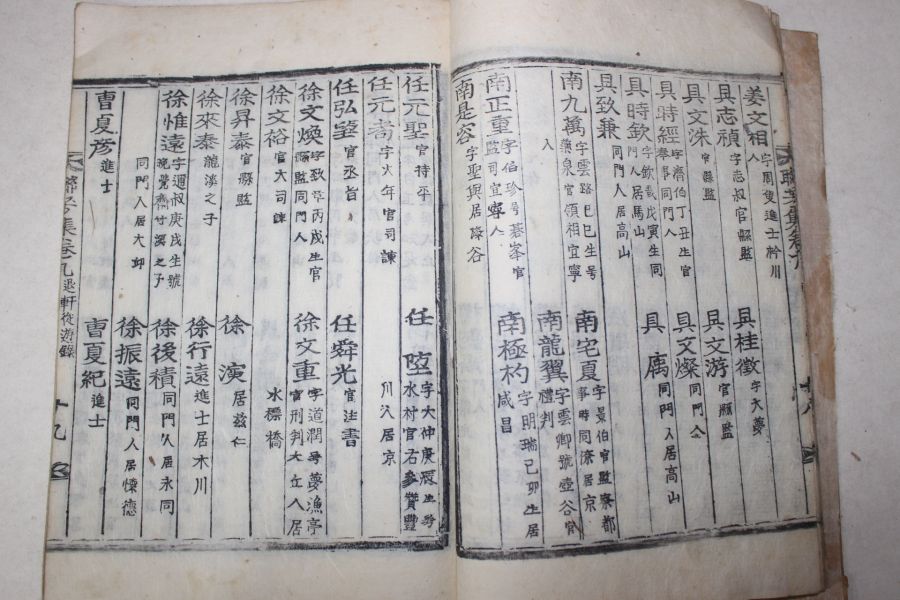 姜文相 字周隻進士衿川人
具桂徵 字大夢
具志禎 字志叔官縣監
具文游 官縣監
具文洙 官縣監
具文燦 同門人
具時經 字濟伯丁丑生官奉事同門人居
具㢞 同門人居高山
具時欽 字欽哉戊寅生同門人居馬山
具致兼 同門人居高山
南九萬 字雲路己巳生号藥泉官領相宜寧人
南宅夏 官監察都事時同僚居京
南龍翼 字雲卿號壺谷官禮判
南正重 字伯珍号碁峯官監司宜寧人
南極杓 字明瑞己卯生居咸昌
南是容 字聖與居
任元聖 官持平
任埅 字大仲庚辰生号水村官右參贊豐川人居京
任元耆 字大年官司諫
任弘望 官丞旨
任舜光 官注書
徐文煥 字致章丙戌生官監同門人
徐文重 字道潤号夢漁亭官刑判大立人居水標橋
徐文裕 官大司諫
徐昇泰 官縣監
徐演 居玆仁
徐來泰 龍溪之子
徐行遠 進士居木川
徐惟遠 字邇叔庚戌生號晚覺齋竹溪之子同門人居大卸
徐後積 同門人居永同
徐振遠 同門人居懷德
曺夏彦 進士
曺夏紀 進士
聯芳集卷九 遲軒從遊錄 十九